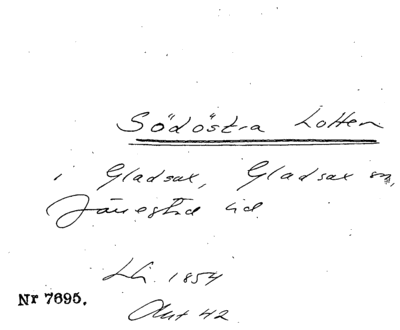 Södöstra Lotten
i Gladsax, Gladsax sn,
Järrestad hd.
Lh. 1854
Akt 42
Nr 7695.